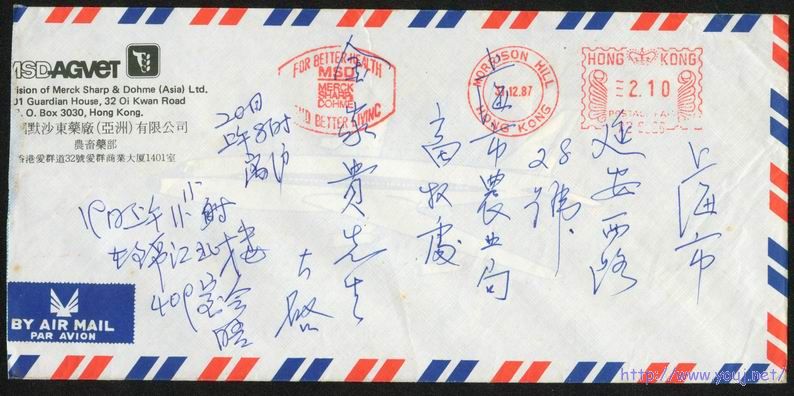 MSD AGVET
ision of Merck Sharp & Dohme (Asia) Ltd.
01 Guardian House, 32 Oi Kwan Road
. O. Box 3030, Hong Kong.
默沙東藥廠(亞洲)有限公司
農畜藥部
香港愛群道32號愛群商業大厦1401室
FOR BETTER HEALTH
MSD
MERCK
SHARP &
DOHME
AND BETTER LIVING
MORRISON HILL
12.87
HONG KONG
HONG KONG
2.10
POSTAGE PAID
上海市
延安西路
28號
上海市農業局
畜牧處
貴先生
大啓
20日
上午8时
離沪
19日上午
錦江北楼
409室会
晤
BY AIR MAIL
PAR AVION
http://www.youj.net/